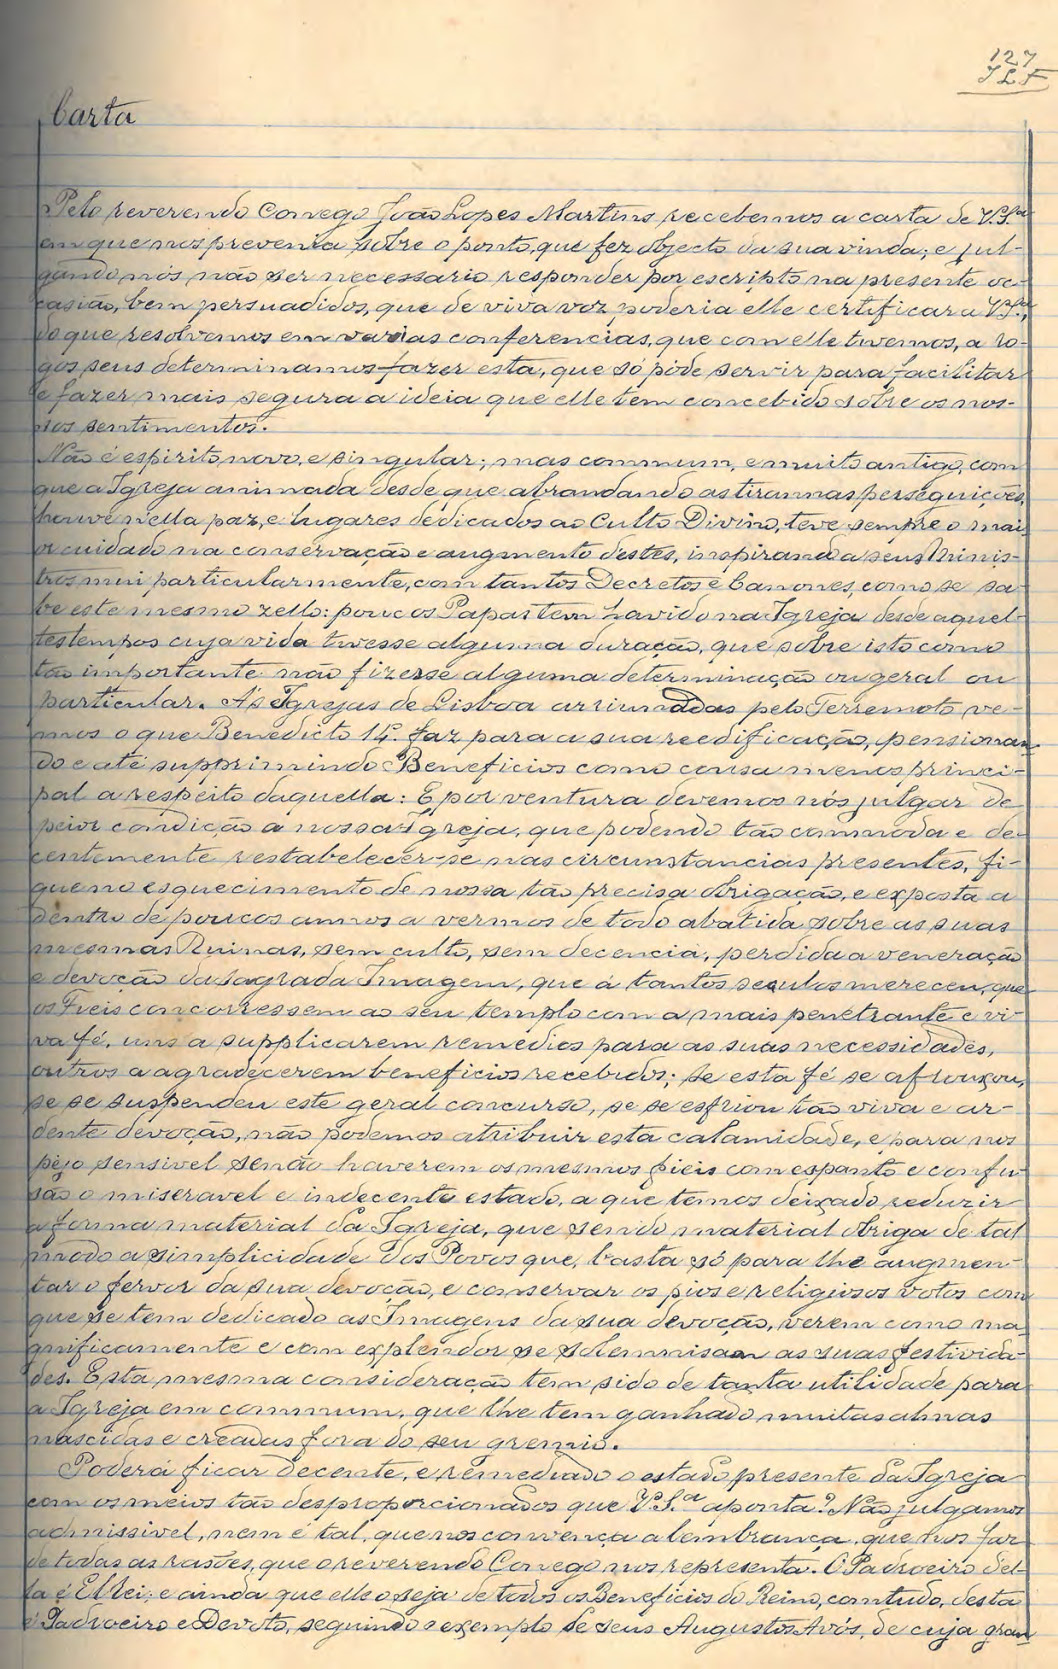 127
JLF
Carta
Pelo reverendo Conego João Lopes Martins recebemos a carta de V.S.ª
em que nos prevenia sobre o ponto, que fez objecto da sua vinda; e jul-
gando nós não ser necessario responder por escripto na presente oc-
casião, bem persuadidos, que de viva voz poderia elle certificar a V.S.ª,
do que resolvemos em varias conferencias, que com elle tivemos, a ro-
gos seus determinamos fazer esta, que só póde servir para facilitar
e fazer mais segura a ideia que elle tem concebido sobre os nos-
sos sentimentos.
Não é espirito novo, e singular; mas commum, e muito antigo, com
que a Igreja animada desde que abrandando as tirannas perseguições,
houve nella paz, e lugares dedicados ao Culto Divino, teve sempre o mai-
or cuidado na conservação e augmento destes, inspirando a seus Minis-
tros mui particularmente, com tantos Decretos e Canones, como se sa-
be este mesmo zello: poucos Papas tem havido na Igreja desde aquel-
tes tempos cuja vida tivesse alguma duração, que sobre isto como
tão importante não fizesse alguma determinação ou geral ou
particular. Ás Igrejas de Lisboa arruinadas pelo Terremoto ve-
mos o que Benedicto 14.º faz para a sua reedificação, pensionan-
do e até supprimindo Beneficios como cousa menos princi-
pal a respeito daquella: E por ventura devemos nós julgar de
peior condição a nossa Igreja, que podendo tão commoda e de-
centemente restabelecer-se nas circunstancias presentes, fi-
que no esquecimento de nossa tão precisa obrigação, e exposta a
dentro de poucos annos a vermos de todo abatida sobre as suas
mesmas Ruinas, sem culto, sem decencia, perdida a veneração
e devoção da Sagrada Imagem, que á tantos seculos mereceu, que
os Fieis concorressem ao seu templo com a mais penetrante e vi-
va fé, uns a supplicarem remedios para as suas necessidades,
outros a agradecerem beneficios recebidos; se esta fé se afrouxou,
se se suspendeu este geral concurso, se se esfriou tão viva e ar-
dente devoção, não podemos atribuir esta calamidade, e para nós
pejo sensivel senão haverem os mesmos fieis com espanto e confu-
são o miseravel e indecente estado, a que temos deixado reduzir
a forma material da Igreja, que sendo material obriga de tal
modo a simplicidade dos Povos que, basta só para lhe augmen-
tar o fervor da sua devoção, e conservar os pios e religiosos votos com
que se tem dedicado as Imagens da sua devoção, verem como ma-
gnificamente e com explendor se solemnisam as suas festivida-
des. Esta mesma consideração tem sido de tanta utilidade para
a Igreja em commum, que lhe tem ganhado muitas almas
nascidas e creadas fora do seu gremio.
Poderá ficar decente, e remediado o estado presente da Igreja
com os meios tão desproporcionados que V.S.ª aponta? Não julgamos
admissivel, nem é tal, que nos convença a lembrança, que nos faz
de todas as rasões, que o reverendo Conego nos representa. O Padroeiro del-
la é El-rei; e ainda que elle o seja de todos os Beneficios do Reino, comtudo, desta
é Padroeiro e Devoto, seguindo o exemplo de seus Augustos Avós, de cuja gran-